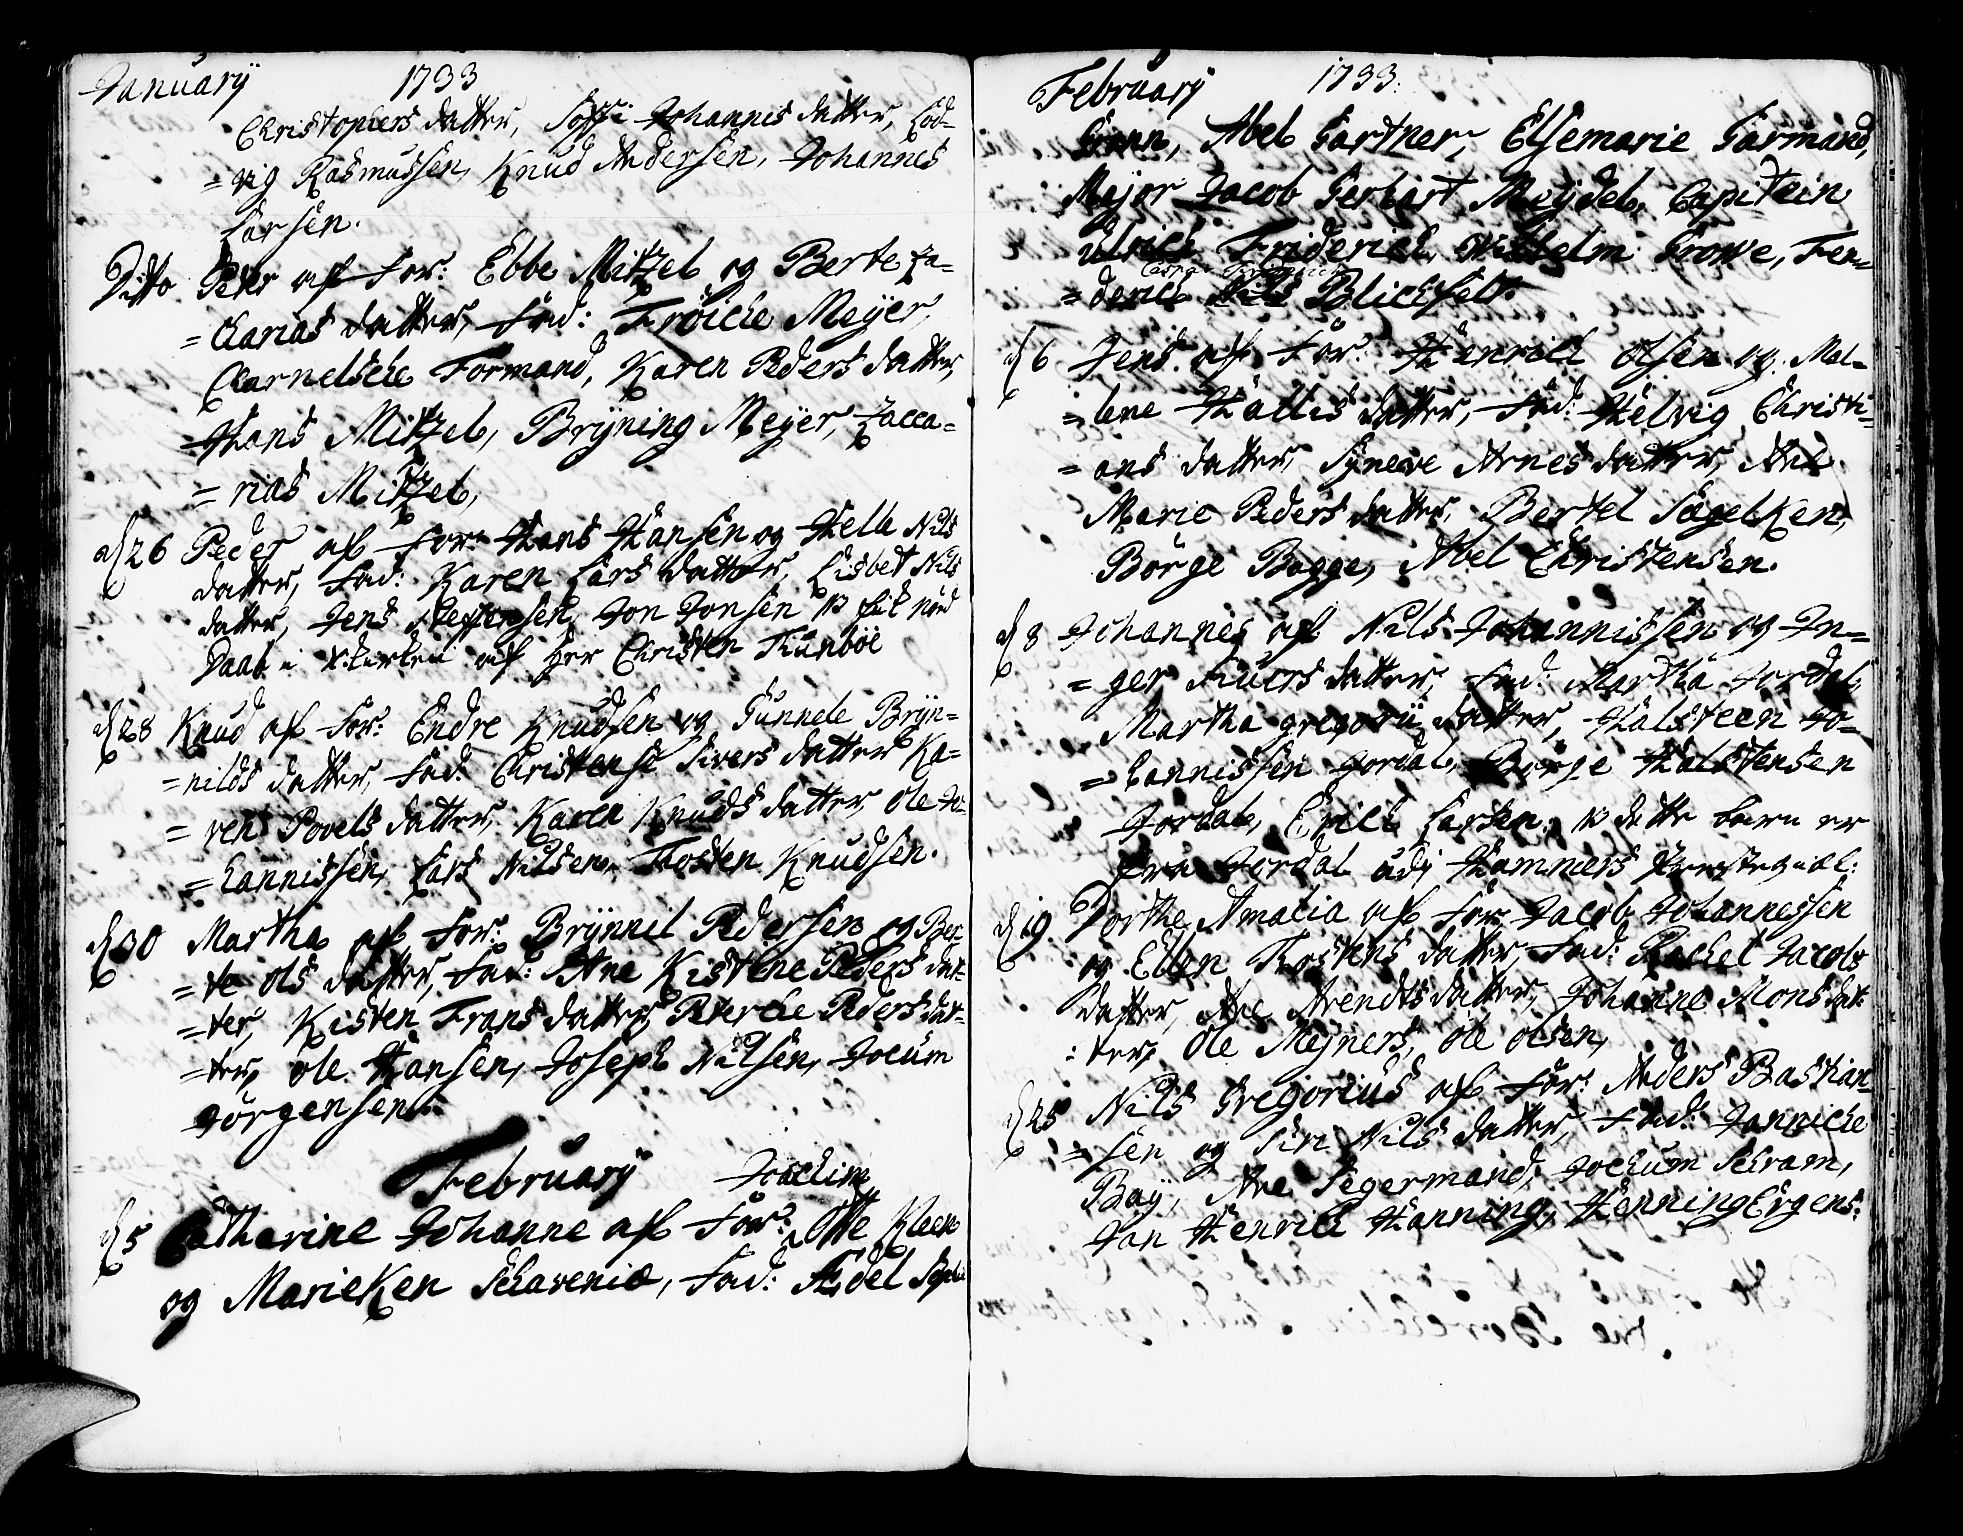 January 1733
Christophers datter, Soffi Johannis datter, Lod-
= vig Rasmussen, Knud Andersen, Johannes
Larsen.
Ditto Peter af For: Ebbe Mitzel og Berte Za-
= charias datter, Fad: Fröiche Meyer,
Charnelsche Formand, Karen Peders datter,
Hans Mitzel, Bryning Meyer, Zacca-
= rias Mitzel,
d 26 Peder af For: Hans Hansen og Helle Nils
datter, Fad: Karen Lars datter, Lisbet Nils
datter, Jens Steffensen, Jon Jonsen NB fik nød
Daab i Kirken af Her Christen Tunböe
d 28 Knud af For: Endre Knudsen og Gunnele Bryn-
= nilds datter, Fad: Christense Sivers datter Ka-
= ren Povels datter, Karen Knuds datter, Ole Jo-
= hannissen, Lars Nilsen, Tosten Knudsen.
d 30 Martha af For: Brynnil Pedersen og Ber-
= te Ols datter, Fad: Ane Kistene Peders dat-
= ter, Kisten Frans datter, Peders dat-
= ter, Ole Hansen, Joseph Nilsen, Jocum
Jörgensen.
February Joachim
d 5 Catharine Johanne af For: Otte Kleen
og Marieken Schavenia, Fad: Ædel Sophi
February 1733.
Gronn, Abel Gartner, Elsemarie Garmand,
Major Jacob Gerhart Meydel, Capitein
Ulrich Friderich Wilhelm Growe, Fre-
= derich Nils Blichfelt.
d 6 Jens af For: Henrich Olsen og Mal-
= lene Hallis datter, Fad: Helvig Christi-
= ans datter, Syneve Arnes datter, Ane
Marie Peders datter, Bertel Segelken,
Börge Bagge, Abel Christensen.
d 8 Johannes af Nils Johannissen og In-
= ger Siuers datter, Fad: Martha Jordal,
Martha gregorii datter, Halsteen Jo-
= hannissen Jordal, Börge Halstensen
Jordal, Erich Larsen, NB dette barn er
fra Jordal udj Hammers Prestegiæl:
d 19 Dorthe Amalia af For: Jacob Johannessen
og Ellen Tostens datter, Fad: Rachel Jacobs
datter, Ane Arendts datter, Johanne Mons dat-
= ter, Ole Mejners, Ole Olsen,
d 25 Nils Gregorius af For: Anders Bastian-
= sen og Siri Nils datter, Fad: Jannicke
Bay, Ane Segermand, Jochum Schram,
Jan Henrich Hanning, Henning Ergens: